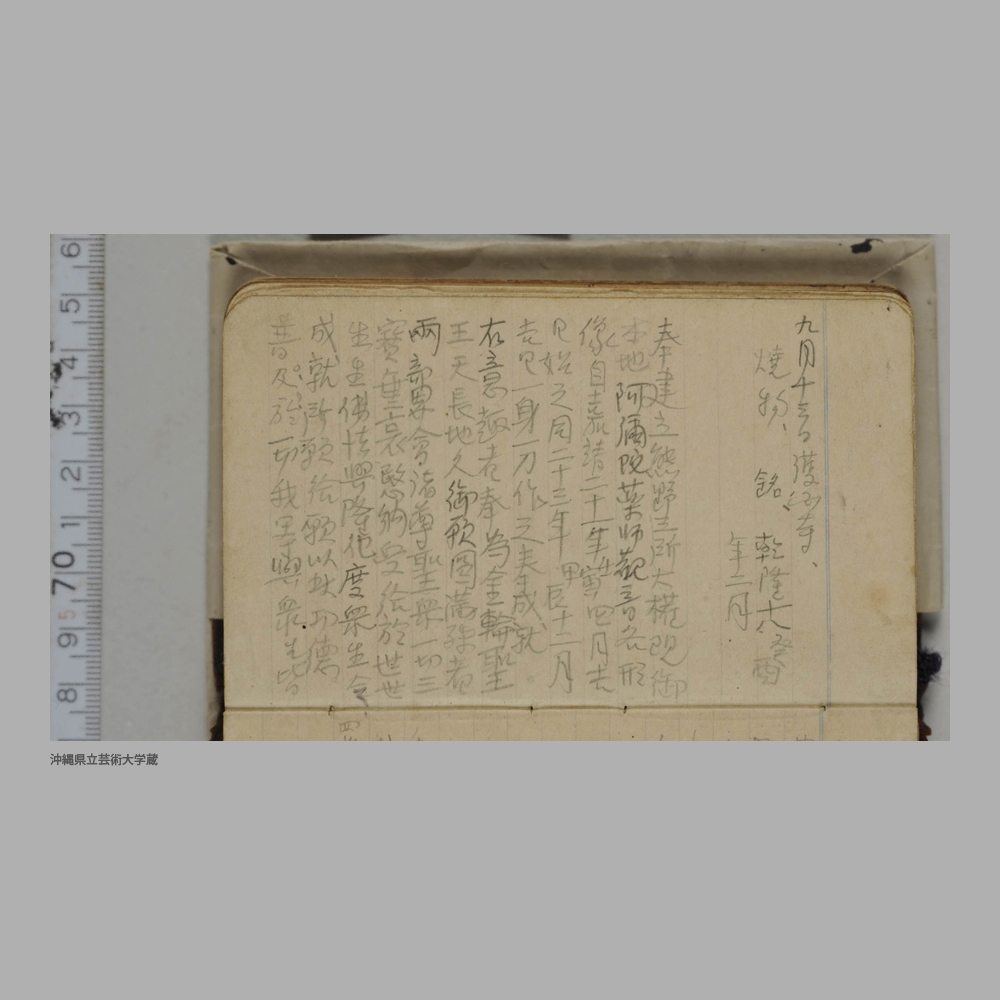 九月十三日護国寺、
燒物、銘、乾隆十八癸酉
年二月
奉建立熊野三所大権現御
本地阿彌陀薬師観音各形
像自嘉靖二十一年壬寅四月吉
日始之同二十三年甲辰十二月
吉日一身一刀作之夫成就
右意趣者奉為金輪聖
王天長地久御願圓満殊者
兩部界會諸尊聖衆一切三
寶垂哀愍納受給於世世
生生佛法興隆化度衆生令
成就所願給願以此功德
普及於一切我等與衆生皆
6 5 4 3 2 1 70 9 5 8
沖縄県立芸術大学蔵